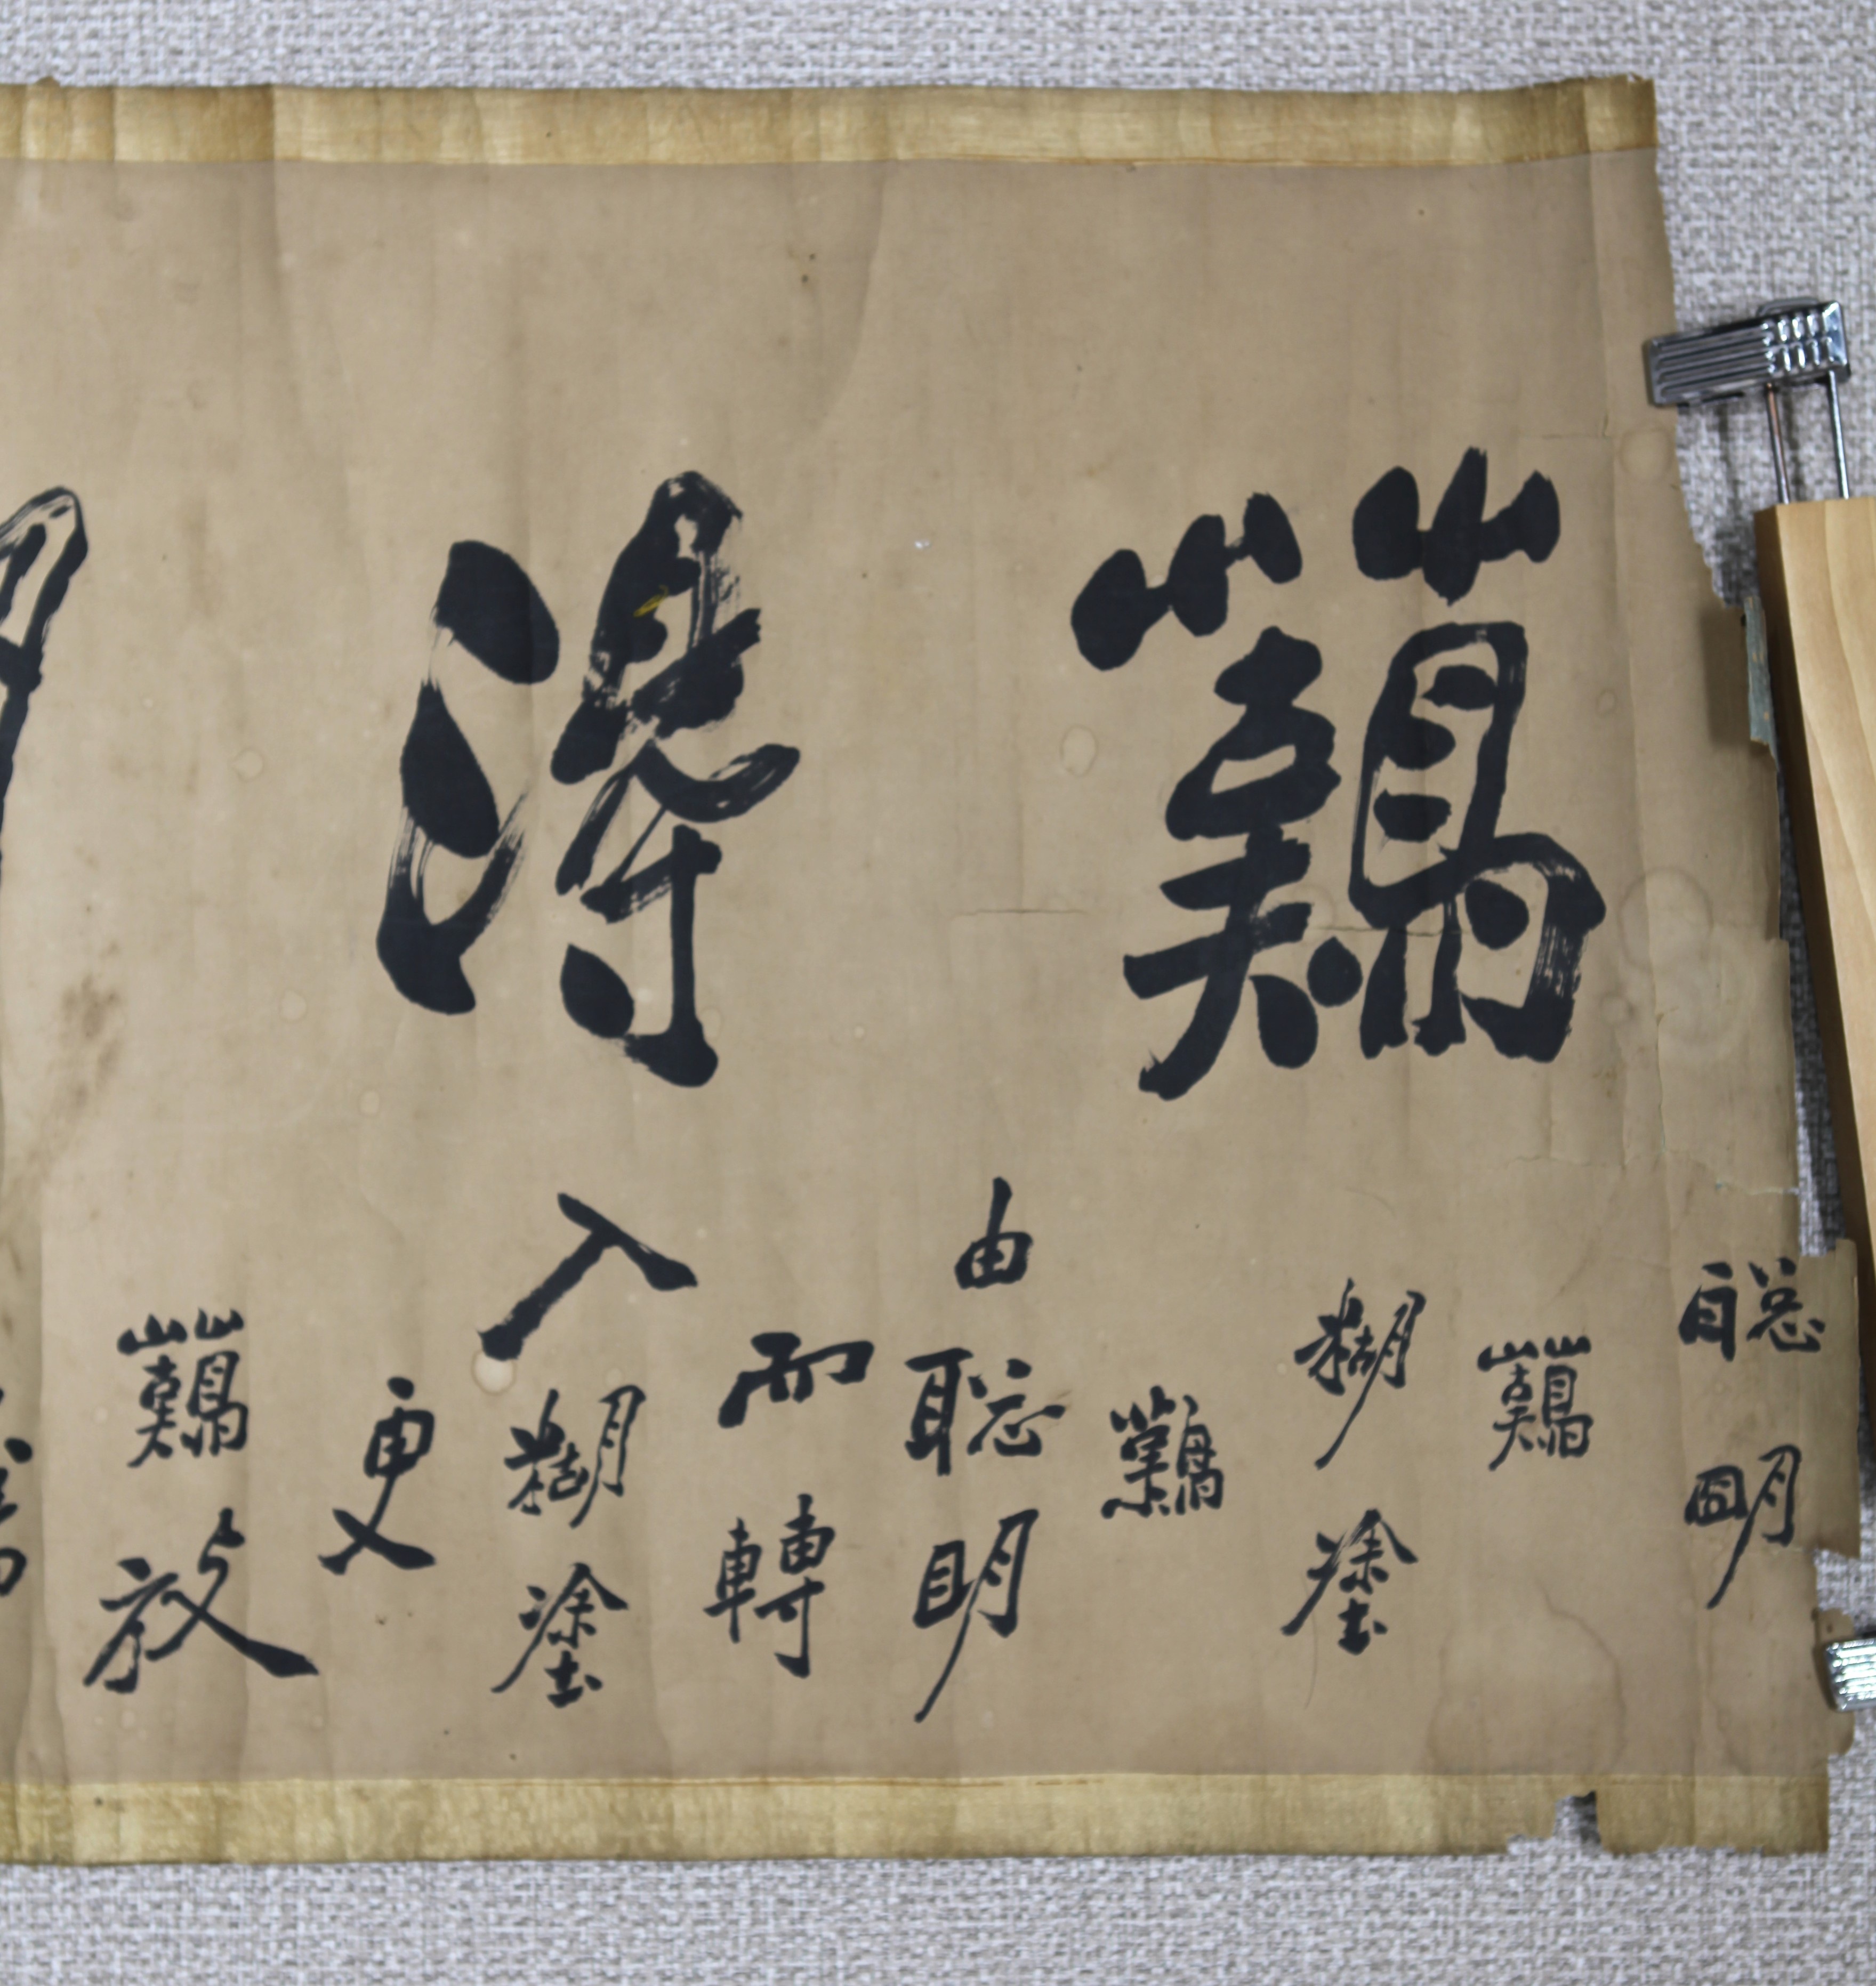 難得
聰明
難
糊塗
難
由聰明
而轉
入糊塗
更
難放